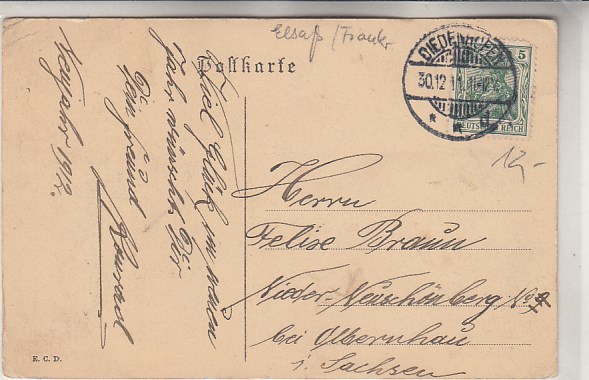 Elsaß / Frankr.
Postkarte
DIEDENHOFEN
30.12.11. 11-12
* * d
5
DEUTSCHES REICH
12,-
Viel Glück im neuen
Jahr wünscht Dir
Dein Freund
Konrad
Neujahr 1912.
Herrn
Felix Braun
Nieder-Neuschönberg No
bei Olbernhau
i. Sachsen
E. C. D.